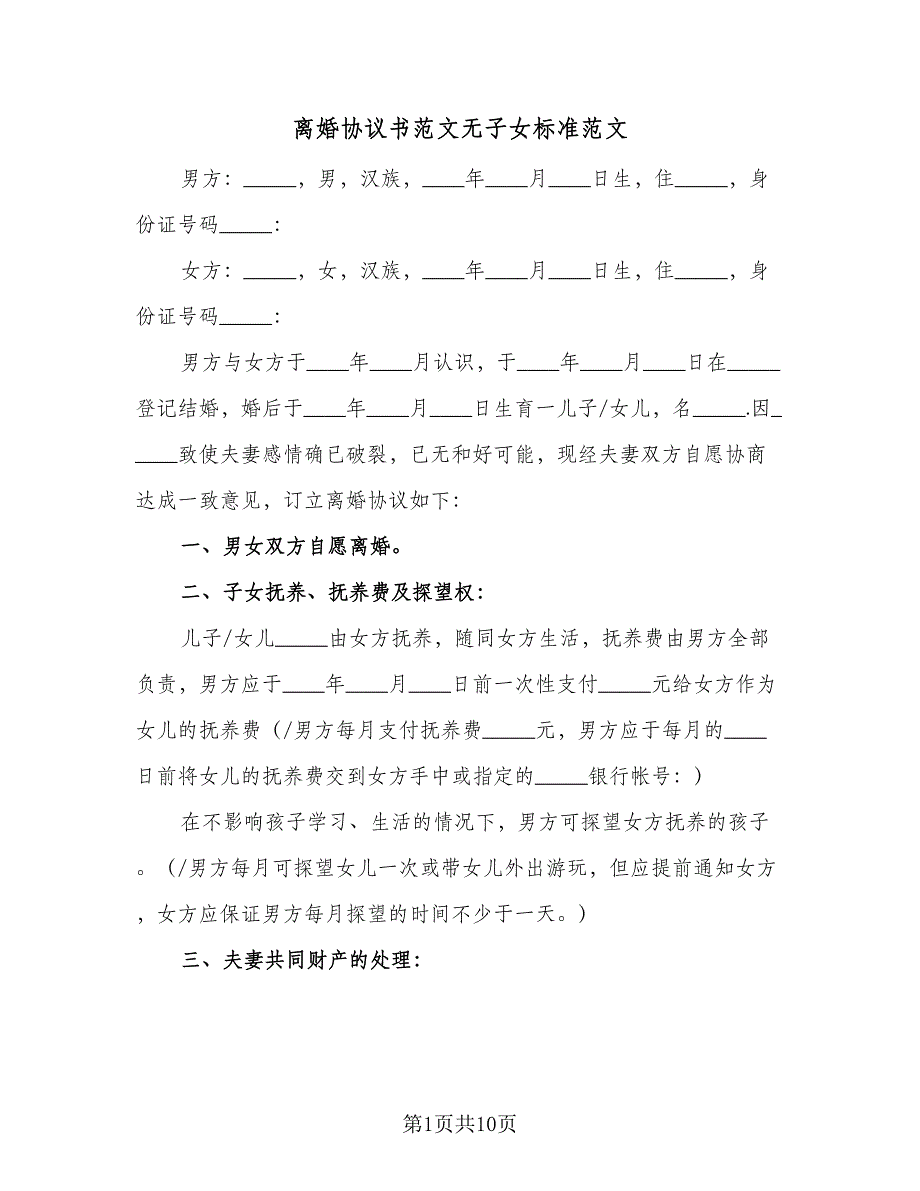 离婚协议书范文无子女标准范文
男方：_____，男，汉族，____年____月____日生，住_____，身
份证号码_____：
女方：_____，女，汉族，____年____月____日生，住_____，身
份证号码_____：
男方与女方于____年____月认识，于____年____月____日在_____
登记结婚，婚后于____年____月____日生育一儿子/女儿，名_____.因_
____致使夫妻感情确已破裂，已无和好可能，现经夫妻双方自愿协商
达成一致意见，订立离婚协议如下：
一、男女双方自愿离婚。
二、子女抚养、抚养费及探望权：
儿子/女儿_____由女方抚养，随同女方生活，抚养费由男方全部
负责，男方应于____年____月____日前一次性支付_____元给女方作为
女儿的抚养费（/男方每月支付抚养费_____元，男方应于每月的____
日前将女儿的抚养费交到女方手中或指定的_____银行帐号：）
在不影响孩子学习、生活的情况下，男方可探望女方抚养的孩子
。（/男方每月可探望女儿一次或带女儿外出游玩，但应提前通知女方
，女方应保证男方每月探望的时间不少于一天。）
三、夫妻共同财产的处理：
第1页共10页